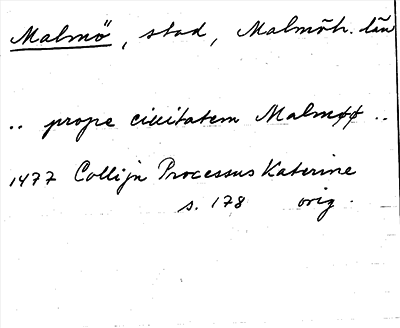 Malmö, stad, Malmöh. län
.. prope ciuitatem Malmøø ..
1477 Collijn Processus Katerine
s. 178 orig.